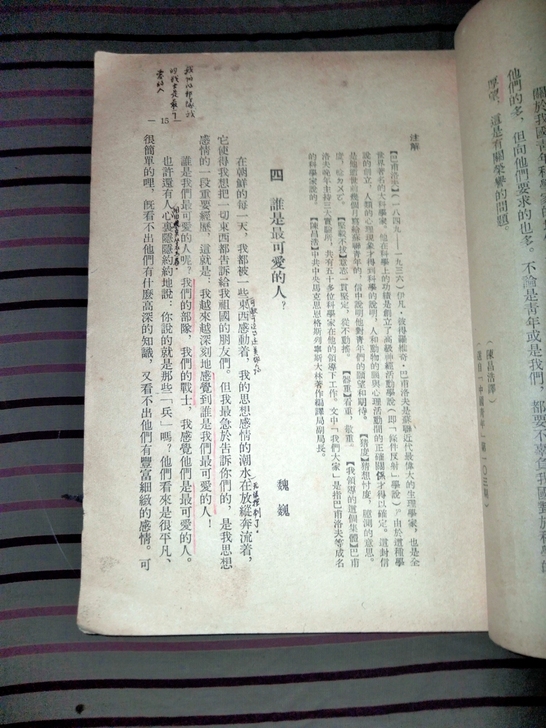 關於我國青年科學家的
他們的多，但向他們要求的也多。不論是青年或是我們，都要不辜負我國對於科學的
厚望，這是有關榮譽的問題。
（陳昌浩譯）
註解
【巴甫洛夫】（一八四九——一九三六）伊凡·彼得羅維奇·巴甫洛夫是蘇聯近代最偉大的生理學家，也是全
世界著名的大科學家。他在科學上的功績是創立了高級神經活動學說（即「條件反射」學說）。由於這種學
說的創立，人類的心理現象才得到科學的說明，人和動物的腦與心理活動間的正確關係才得以確定。這封信
是他逝世前幾個月寫給蘇聯青年的，信中說明他對青年們的願望和期待。
【堅韌不拔】意志一貫堅定，從不動搖。【器重】看重，敬重。【我領導的這個集體】巴甫
洛夫晚年主持三大實驗所，共有五十多位科學家在他的領導下工作。文中「我們大家」是指巴甫洛夫等成名
的科學家說的。【陳昌浩】中共中央馬克思恩格斯列寧斯大林著作編譯局副局長。
四 誰是最可愛的人？
魏巍
在朝鮮的每一天，我都被一些東西感動着，我的思想感情的潮水在放縱奔流着，
它使得我想把一切東西都告訴給我祖國的朋友們。但我最急於告訴你們的，是我思想
感情的一段重要經歷，這就是：我越來越深刻地感覺到誰是我們最可愛的人！
誰是我們最可愛的人呢？我們的部隊，我們的戰士，我感覺他們是最可愛的人。
也許還有人心裏隱隱約約地說：你說的就是那些「兵」嗎？他們看來是很平凡、
很簡單的哩，既看不出他們有什麼高深的知識，又看不出他們有豐富細緻的感情。可
— 15 —